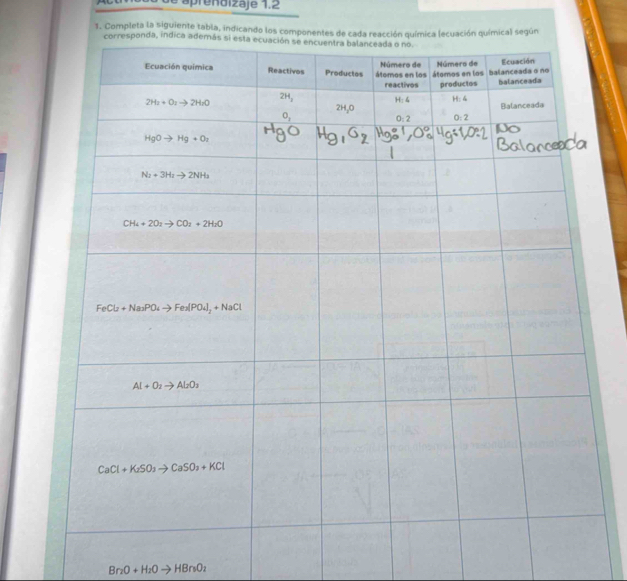 de aprendizaje 1.2
1. Completa la siguiente tabla, indicando los componentes de cada reacción química (ecuación química) según
corresponda, indica además si esta ecuación se encuentra balanceada o no.
Ecuación química Reactivos Productos Número de átomos en los reactivos Número de átomos en los productos Ecuación balanceada o no balanceada
2H₂ + O₂ → 2H₂O 2H₂ O₂ 2H₂O H: 4 O: 2 H: 4 O: 2 Balanceada
HgO → Hg + O₂ HgO Hg, O₂ Hg: 1, O: 1 Hg: 1, O: 2 No Balanceada
N₂ + 3H₂ → 2NH₃
CH₄ + 2O₂ → CO₂ + 2H₂O
FeCl₂ + Na₃PO₄ → Fe₃(PO₄)₂ + NaCl
Al + O₂ → Al₂O₃
CaCl + K₂SO₃ → CaSO₃ + KCl
Br₂O + H₂O → HBrO₂